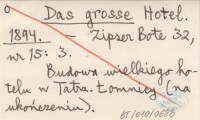 o Das grosse Hotel.
1894. — Zipser Bote 32,
nr 15: 3.
Budowa wielkiego ho-
telu w Tatrz. Łomnicy (na
ukończeniu).
BT/010/0683